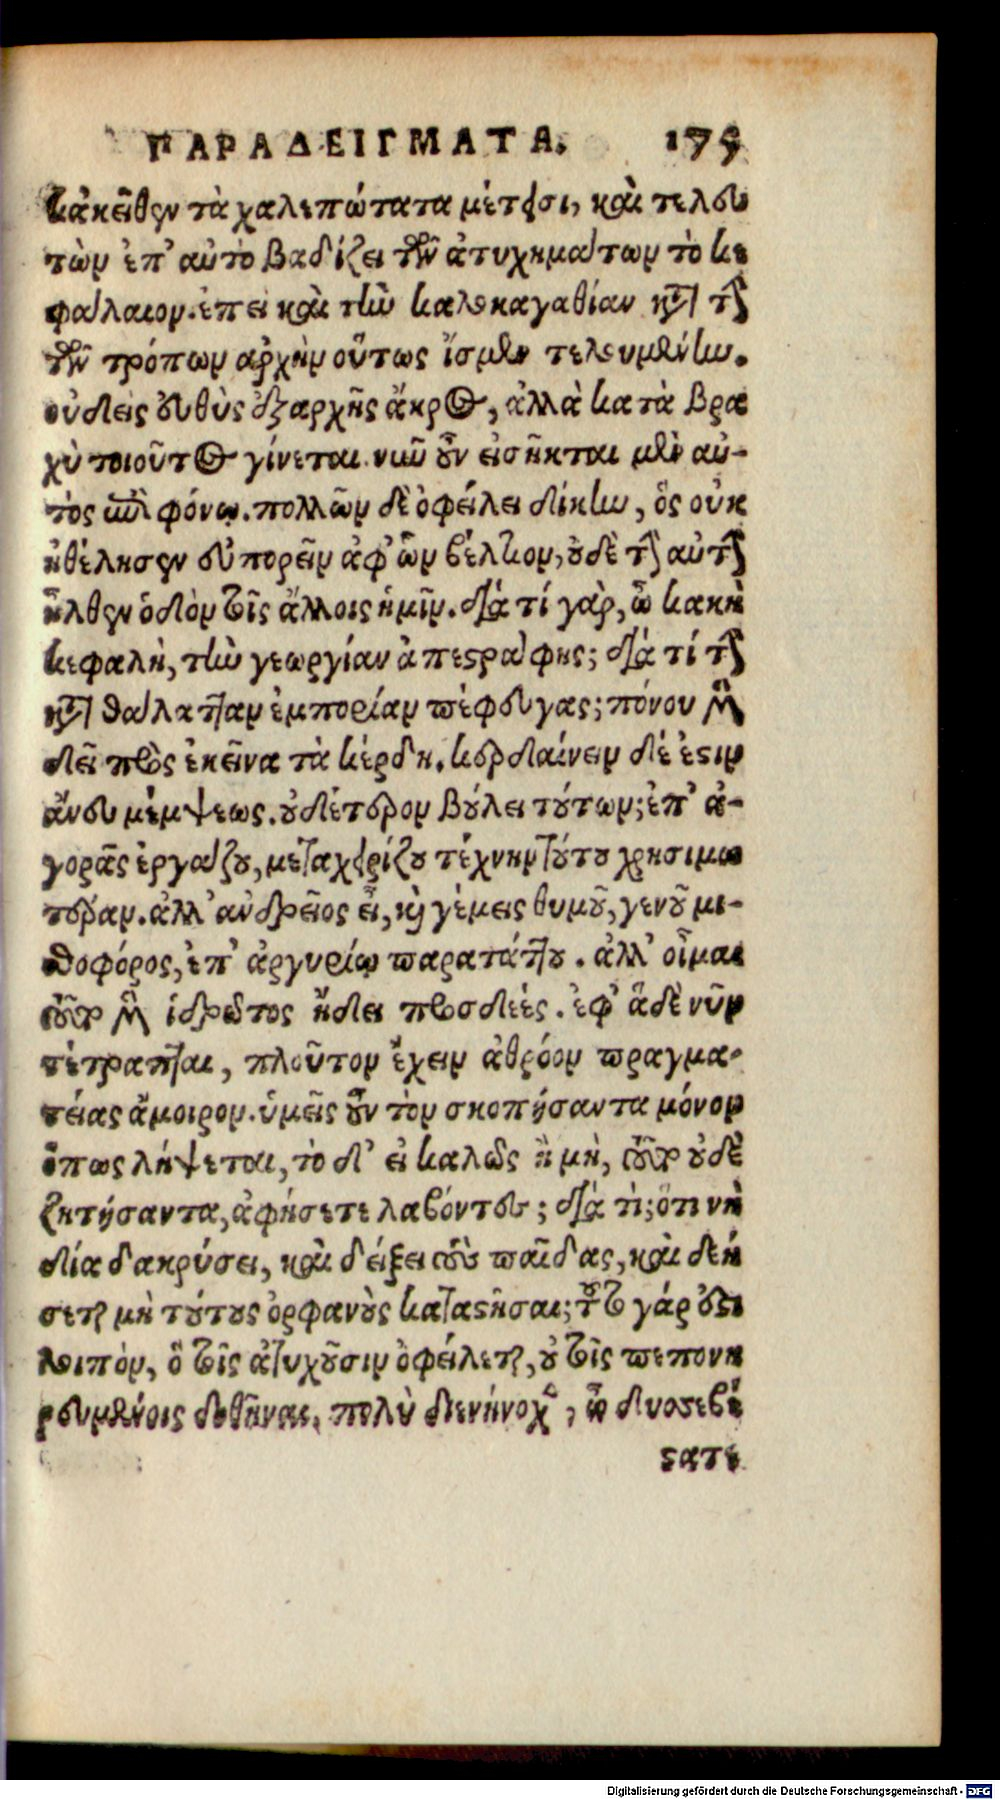 ΠΑΡΑΔΕΙΓΜΑΤΑ. 175
κἀκεῖθεν τὰ χαλεπώτατα μέτεισι, καὶ τελευ
τῶν ἐπ' αὐτὸ βαδίζει τῶν ἀτυχημάτων τὸ κε
φάλαιον. ἐπεὶ καὶ τὴν καλοκαγαθίαν καὶ τὴν
τῶν τρόπων ἀρχὴν οὕτως ἴσμεν τελουμένην.
οὐδεὶς εὐθὺς ἐξαρχῆς ἄκρος, ἀλλὰ κατὰ βρα
χὺ τοιοῦτος γίνεται. νῦν οὖν εἰσῆκται μὲν αὐ-
τὸς ἐπὶ φόνῳ. πολλῶν δὲ ὀφείλει δίκην, ὃς οὐκ
ἠθέλησεν εὐπορεῖν ἀφ' ὧν βέλτιον, οὐδὲ τὴν αὐτὴν
ἦλθεν ὁδὸν τοῖς ἄλλοις ἡμῖν. διὰ τί γὰρ, ὦ κακὴ
κεφαλὴ, τὴν γεωργίαν ἀπεστράφης; διὰ τί τὴν
κατὰ θάλατταν ἐμπορίαν πέφευγας; πόνου
δεῖ πρὸς ἐκεῖνα τὰ κέρδη. κερδαίνειν δέ ἐστιν
ἄνευ μέμψεως. οὐδέτερον βούλει τούτων; ἐπ' ἀ-
γορᾶς ἐργάζου, μεταχειρίζου τέχνην τούτου χρησιμω
τέραν. ἀλλ' ἀνδρεῖος εἶ, καὶ γέμεις θυμοῦ, γενοῦ μι-
σθοφόρος, ἐπ' ἀργυρίῳ παρατάττου. ἀλλ' οἶμαι
ἱδρῶτος ᾔδει προσδεές. ἐφ' ἃ δὲ νῦν
τέτραπται, πλοῦτον ἔχειν ἀθρόον πραγμα-
τείας ἄμοιρον. ὑμεῖς οὖν τὸν σκοπήσαντα μόνον
ὅπως λήψεται, τὸ δ' εἰ καλῶς ἢ μὴ, οὐδὲ
ζητήσαντα, ἀφήσετε λαβόντες; διὰ τί; ὅτι νὴ
δία δακρύσει, καὶ δείξει τοὺς παῖδας, καὶ δεή
σεται μὴ τούτους ὀρφανοὺς καταστῆσαι; τοῦτο γάρ ἐστι
λοιπὸν, ὃ τοῖς ἀτυχοῦσιν ὀφείλεται, οὐ τοῖς πεπονη
ρευμένοις δοθῆναι. πολὺ διενήνοχε, ὦ δυσσεβέ
στατε
Digitalisierung gefördert durch die Deutsche Forschungsgemeinschaft - DFG